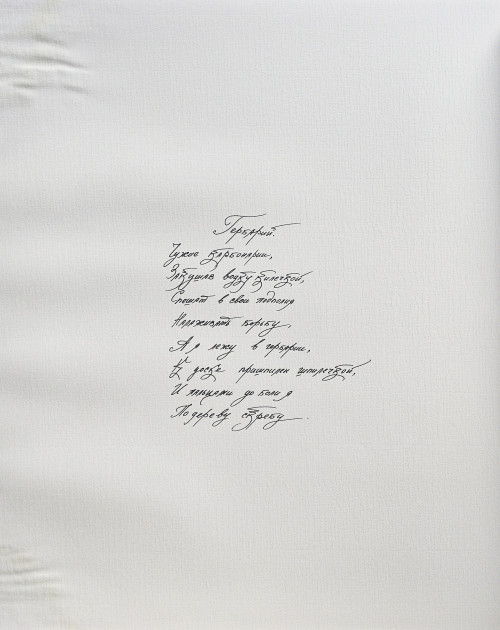 Гербарий.
Чужие карбонарии,
Закушав водку килечкой,
Спешат в свои подполия
Налаживать борьбу.
А я лежу в гербарии,
К доске пришпилен шпилечкой,
И пальцами до боли я
По дереву скребу.